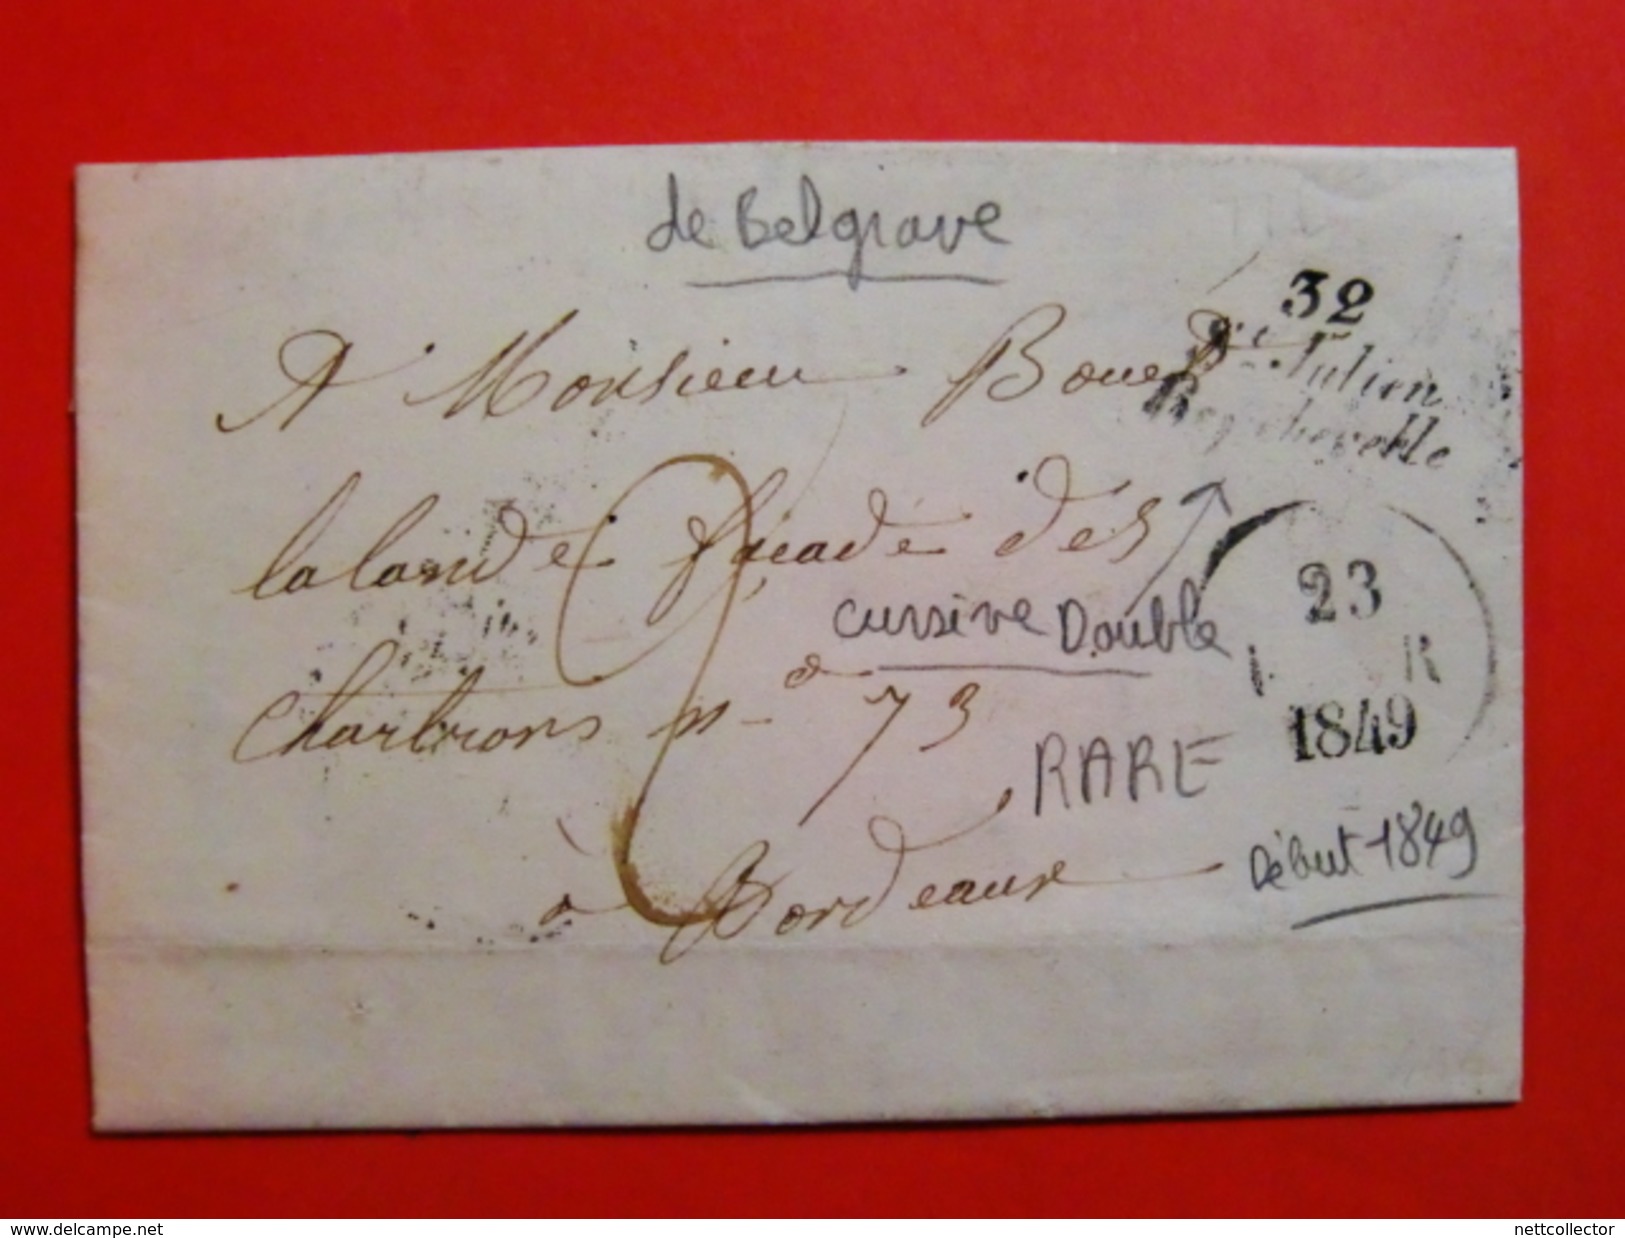 de Belgrave
32
St. Julien
Beychevelle
A Monsieur Boued
lalande façade des
Chartrons no 73
à Bordeaux
2
cursive Double
RARE
23
R
1849
Début 1849
www.delcampe.net
nettcollector